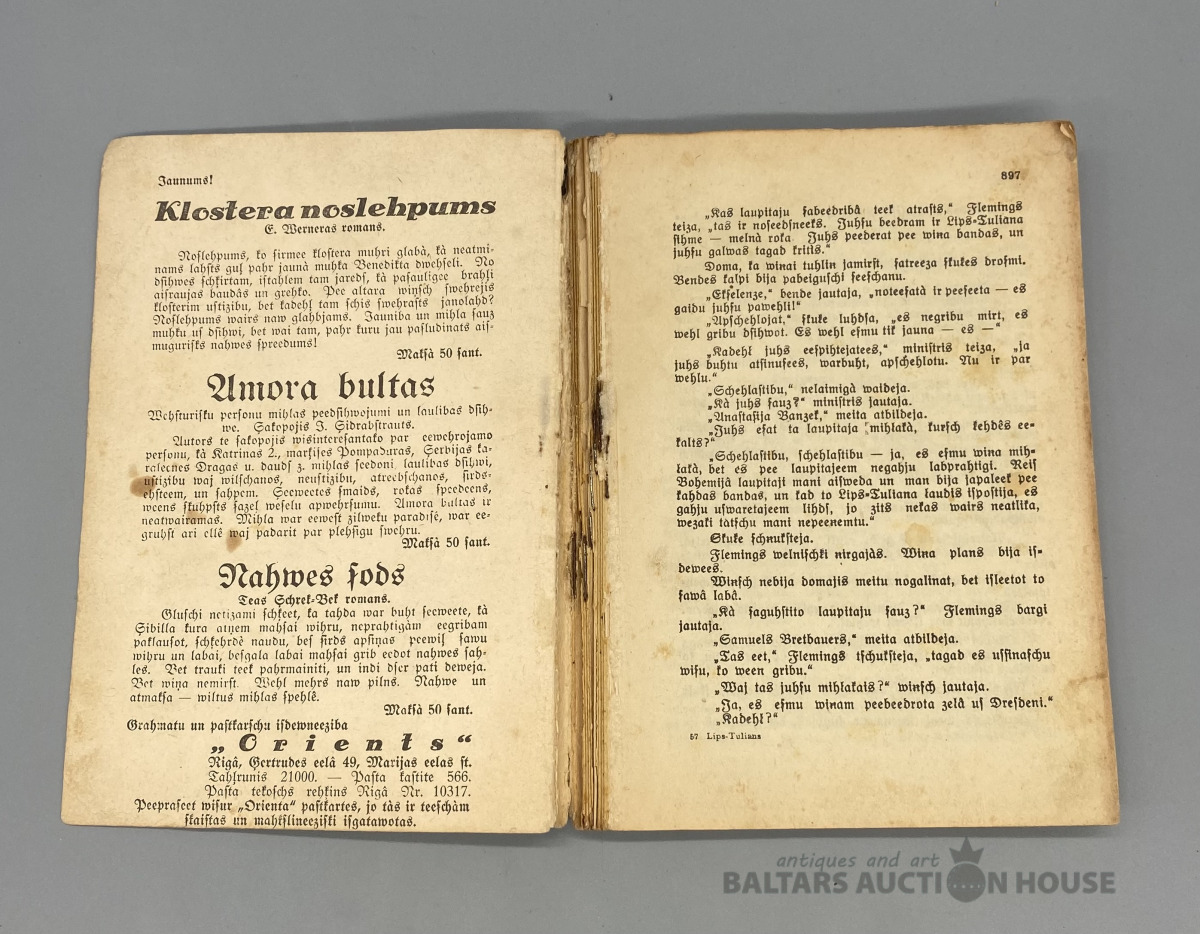 Jaunums!
Klostera noslehpums
E. Werneras romans.
Noslehpums, ko sirmee klostera muhri glabà, kà neatmi-
nams lahsts guļ pahr jaunà muhka Benedikta dwehseli. No
dsihwes schķirtam, istahlem tam jareds, kà pasauligee brahļi
aisraujas baudàs un grehko. Pee altara wiņsch swehrejis
klosterim ustizibu, bet kadehļ tam schis swehrasts janolahd?
Noslehpums wairs naw glahbjams. Jauniba un mihla sauz
muhku us dsihwi, bet wai tam, pahr kuru jau pasludinats ais-
mugurisks nahwes spreedums!
Maksà 50 sant.
Amora bultas
Wehsturisku personu mihlas peedsihwojumi un laulibas dsih-
we. Sakopojis J. Sidrabstrauts.
Autors te sakopojis wisinteresantako par eewehrojamo
personu, kà Katrinas 2., markises Pompaduras, Serbijas ka-
raleenes Dragas u. daudz z. mihlas seedoni laulibas dsihwi,
ustizibu waj wilschanos, neustizibu, atreebschanos, sirds-
ehsteem, un sahpem. Seeweetes smaids, rokas speedeens,
weens skuhpsts sazeļ weselu apwehrsumu. Amora bultas ir
neatwairamas. Mihla war eewest zilweku paradisé, war ee-
gruhst ari ellê waj padarit par plehsigu swehru.
Maksà 50 sant.
Nahwes sods
Teas Schrek-Bek romans.
Gluschi netizami schķeet, ka tahda war buht seeweete, kà
Sibilla kura atņem mahsai wihru, neprahtigàm eegribam
paklausot, schķehrdê naudu, bes sirds apsiņas peewiļ sawu
wihru un labai, besgala labai mahsai grib eedot nahwes sah-
les. Bet trauki teek pahrmainiti, un indi dser pati deweja.
Bet wiņa nemirst. Wehl mehrs naw pilns. Nahwe un
atmaksa — wiltus mihlas spehlê.
Maksà 50 sant.
Grahmatu un pastkarschu isdewneeziba
„Orients“
Rigâ, Gertrudes eelâ 49, Marijas eelas st.
Tahlrunis 21000. — Pasta kastite 566.
Pasta tekoschs rehķins Rigâ Nr. 10317.
Peepraseet wisur „Orienta“ pastkartes, jo tàs ir teeschàm
skaistas un mahkslineeziski isgatawotas.
897
„Kas laupitaju sabeedribâ teek atrasts,“ Flemings
teiza, „tas ir noseedsneeks. Juhsu beedram ir Lips-Tuliana
sihme — melnà roka. Juhs peederat pee wina bandas, un
juhsu galwas tagad kritis.“
Doma, ka winai tuhlin jamirst, satreeza skukes drosmi.
Bendes kalpi bija pabeiguschi seeschanu.
„Ekselenze,“ bende jautaja, „noteesatà ir peeseeta — es
gaidu juhsu pawehli!“
„Apschehlojat,“ skuke luhdsa, „es negribu mirt, es
wehl gribu dsihwot. Es wehl esmu tik jauna — es —“
„Kadehl juhs eespihtejatees,“ ministris teiza, „ja
juhs buhtu atsinusees, warbuht, apschehlotu. Nu ir par
wehlu.“
„Schehlastibu,“ nelaimigà waideja.
„Kà juhs sauz?“ ministris jautaja.
„Anastasija Banzek,“ meita atbildeja.
„Juhs esat ta laupitaja mihlakà, kursch kehdês ee-
kalts?“
„Schehlastibu, schehlastibu — ja, es esmu wina mih-
lakà, bet es pee laupitajeem negahju labprahtigi. Reis
Bohemijâ laupitaji mani aisweda un man bija japaleek pee
kahdas bandas, un kad to Lips-Tuliana laudis ispostija, es
gahju uswaretajeem lihds, jo zits nekas wairs neatlika,
wezaki tàtschu mani nepeenemtu.“
Skuke schnuksteja.
Flemings welnischki nirgajàs. Wina plans bija is-
dewees.
Winsch nebija domajis meitu nogalinat, bet isleetot to
sawâ labâ.
„Kà saguhstito laupitaju sauz?“ Flemings bargi
jautaja.
„Samuels Bretbauers,“ meita atbildeja.
„Tas eet,“ Flemings tschuksteja, „tagad es ussinaschu
wisu, ko ween gribu.“
„Waj tas juhsu mihlakais?“ winsch jautaja.
„Ja, es esmu winam peebeedrota zelâ us Dresdeni.“
„Kadehl?“
57 Lips-Tulians
antiques and art
BALTARS AUCTION HOUSE